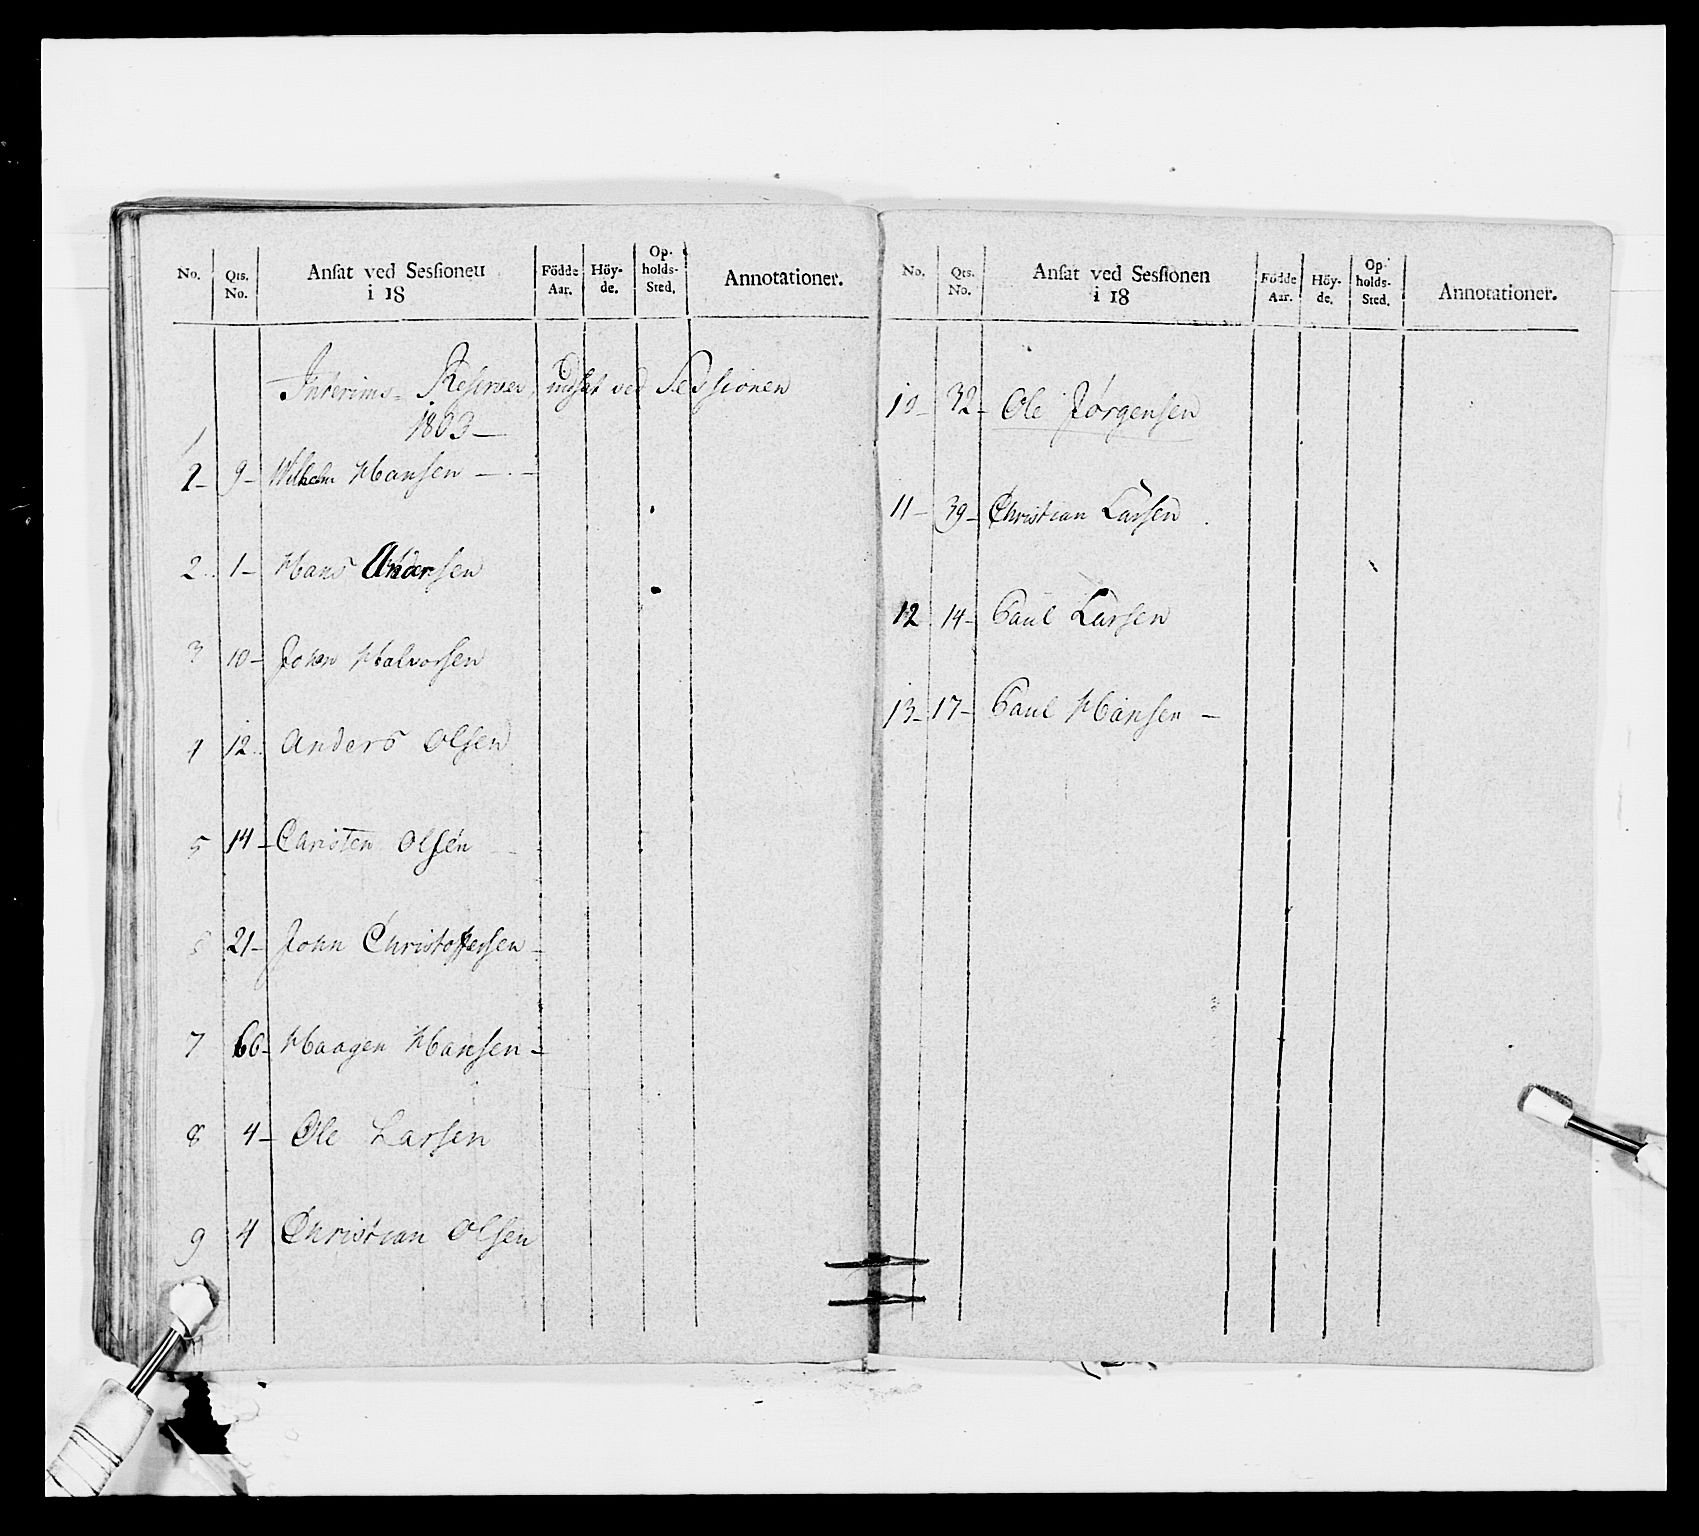 No. Qts. No. Ansat ved Sessionen i 18 Födde Aar. Höyde. Opholds-Sted. Annotationer.
Interims-Reserver, udsat ved Sessionen
1803
1 9 Wilhelm Hansen
2 1 Hans Andersen
3 10 John Halvorsen
4 12 Anders Olsen
5 14 Christen Olsen
6 21 John Christoffersen
7 66 Haagen Hansen
8 4 Ole Larsen
9 4 Christian Olsen
No. Qts. No. Ansat ved Sessionen i 18 Födde Aar. Höyde. Opholds-Sted. Annotationer.
10 32 Ole Jørgensen
11 39 Christian Larsen
12 14 Paul Larsen
13 17 Paul Hansen